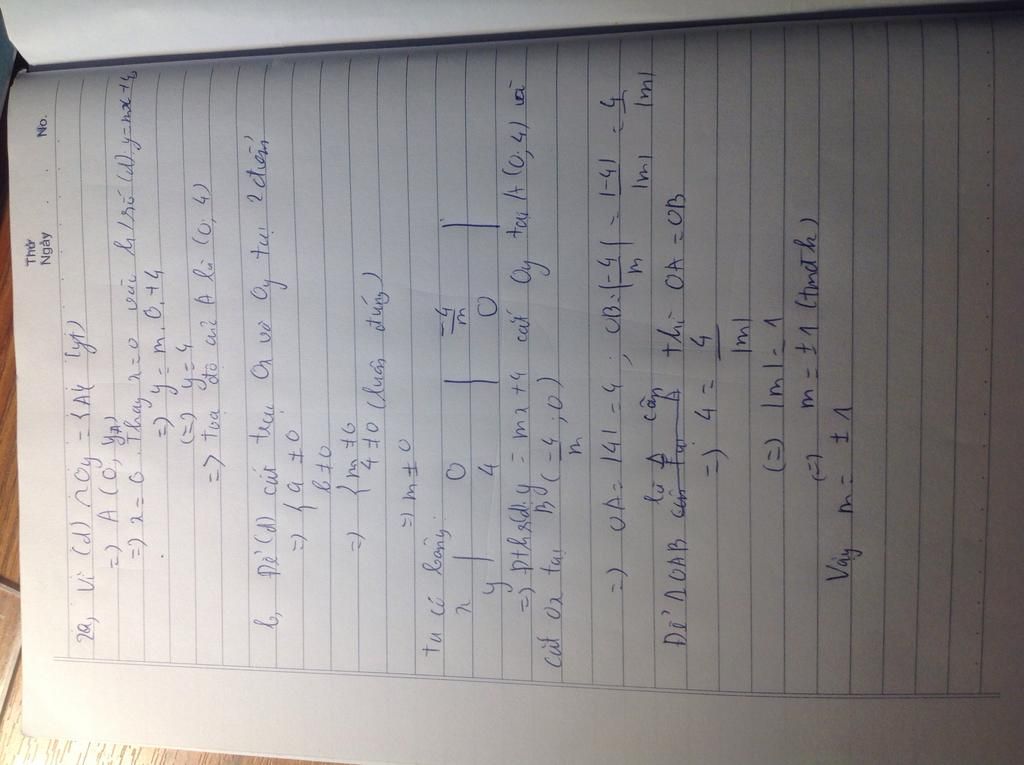 Thứ
Ngày No.
2a, Vì (d) ∩ Oy = {A} (gt)
=> A (0; yA)
=> x = 0. Thay x = 0 vào h/số (d) y = mx + 4,
=> y = m. 0 + 4
(=) y = 4
=> toạ độ của A là (0; 4)
b, Để (d) cắt trục Ox và Oy tại 2 điểm
=> { a ≠ 0
b ≠ 0
=> { m ≠ 0
4 ≠ 0 (luôn đúng)
=> m ≠ 0
ta có bảng:
x | 0 | -4/m |
y | 4 | 0 |
=> Đths (d) y = mx + 4 cắt Oy tại A (0; 4) và
cắt Ox tại B (-4/m; 0)
=> OA = |4| = 4; OB = |-4/m| = |-4|/|m| = 4/|m|
Để Δ OAB là Δ cân thì OA = OB
=> 4 = 4/|m|
(=) |m| = 1
(=) m = ± 1 (tmđk)
Vậy m = ± 1